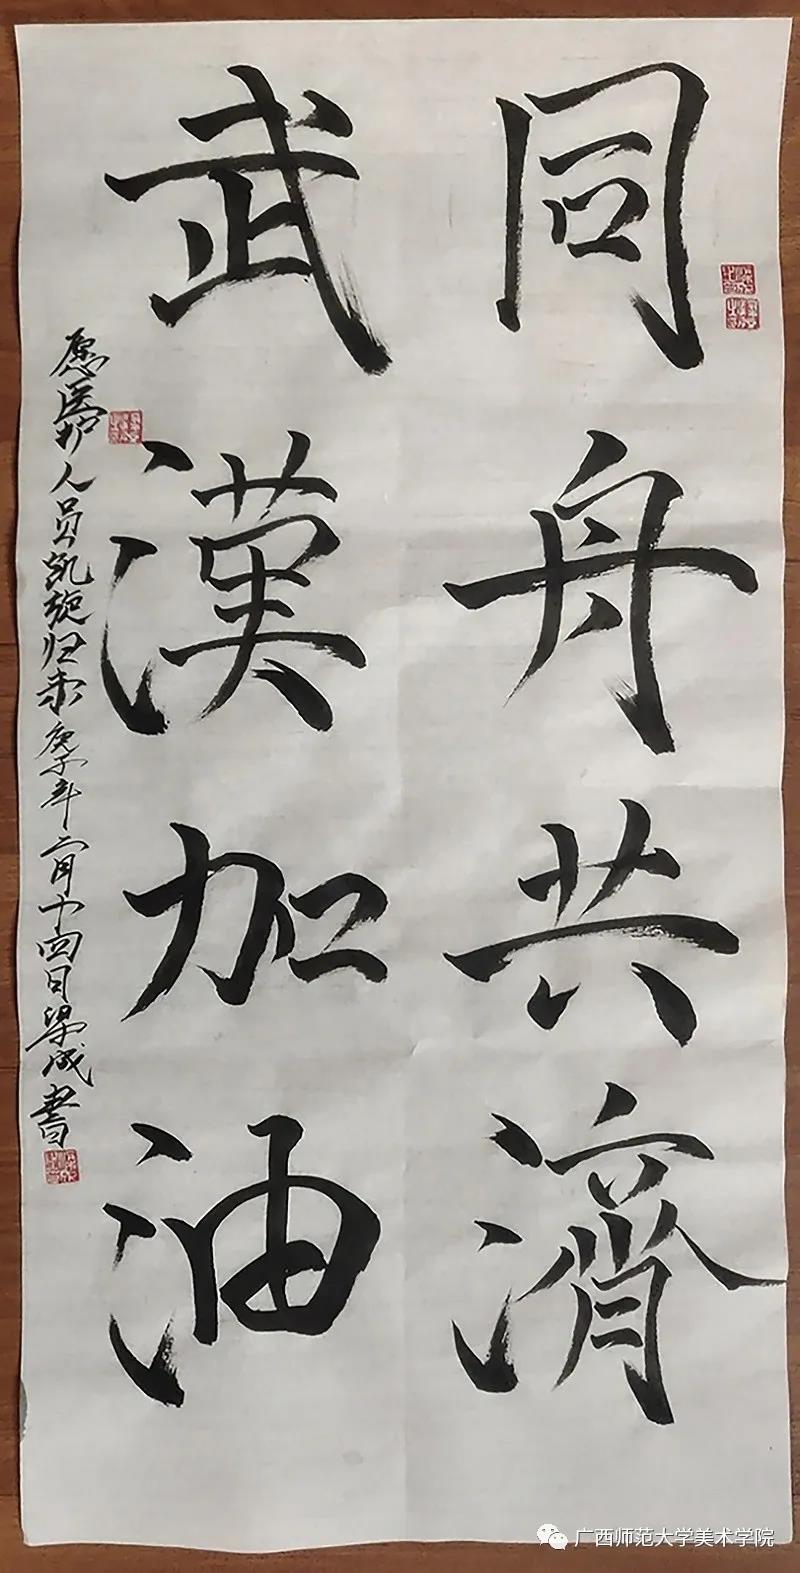 同舟共濟
武漢加油
愿医护人员凯旋归来庚子年二月十四日梁成書
广西师范大学美术学院